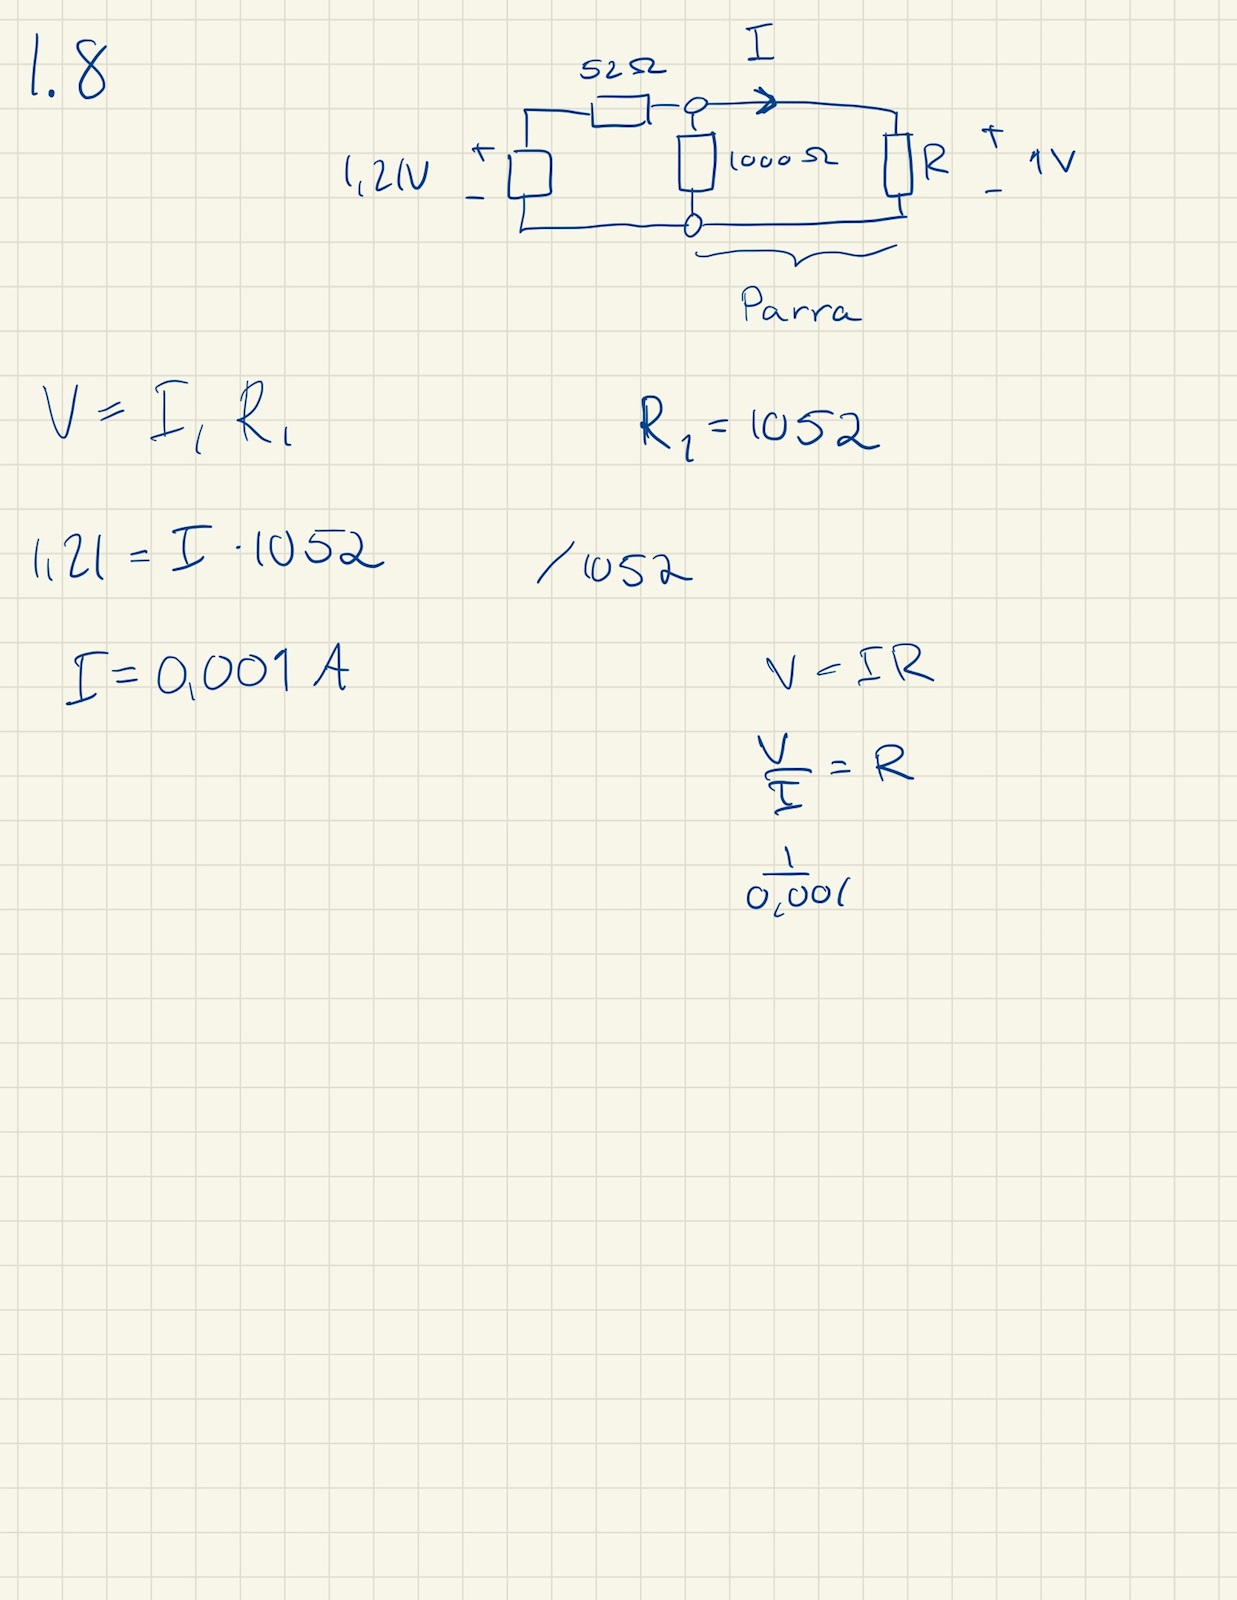 1.8
I
52Ω
1,21V + -
1000Ω
R + - 1V
Parra
V = I₁ R₁
R₁ = 1052
1,21 = I · 1052 / 1052
I = 0,001 A
V = IR
V/I = R
1/0,001